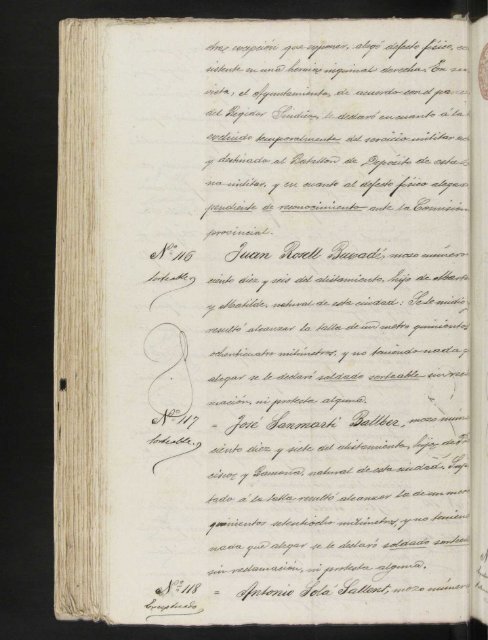 otra excepción que exponer, alegó defecto físico, con
sistente en una hernia inguinal derecha. En su
vista, el Ayuntamiento, de acuerdo con el
del Regidor Síndico, le declaró en cuanto á la
excluido temporalmente del servicio militar
y destinado al Batallón de Depósito de esta
na militar, y en cuanto al defecto físico alegado
pendiente de reconocimiento ante la Comisión
provincial.
Nº 116
sorteable
Juan Rosell mozo número
ciento diez y seis del alistamiento, hijo de
y Matilde, natural de esta ciudad: Se le midió
resultó alcanzar la talla de un metro quinientos
ochenticuatro milímetros, y no teniendo nada q
alegar se le declaró soldado sorteable sin
mación, ni protesta alguna.
Nº 117
sorteable
= José Sanmartí Ballber, mozo
ciento diez y siete del alistamiento, hijo de
y Ramona, natural de esta ciudad.
tado á la talla resultó alcanzar la de un
quinientos setentiocho milímetros, y no
nada que alegar se le declaró soldado
sin reclamación, ni protesta alguna.
Nº 118
Exceptuado
= Antonio Solá Sallent, mozo número